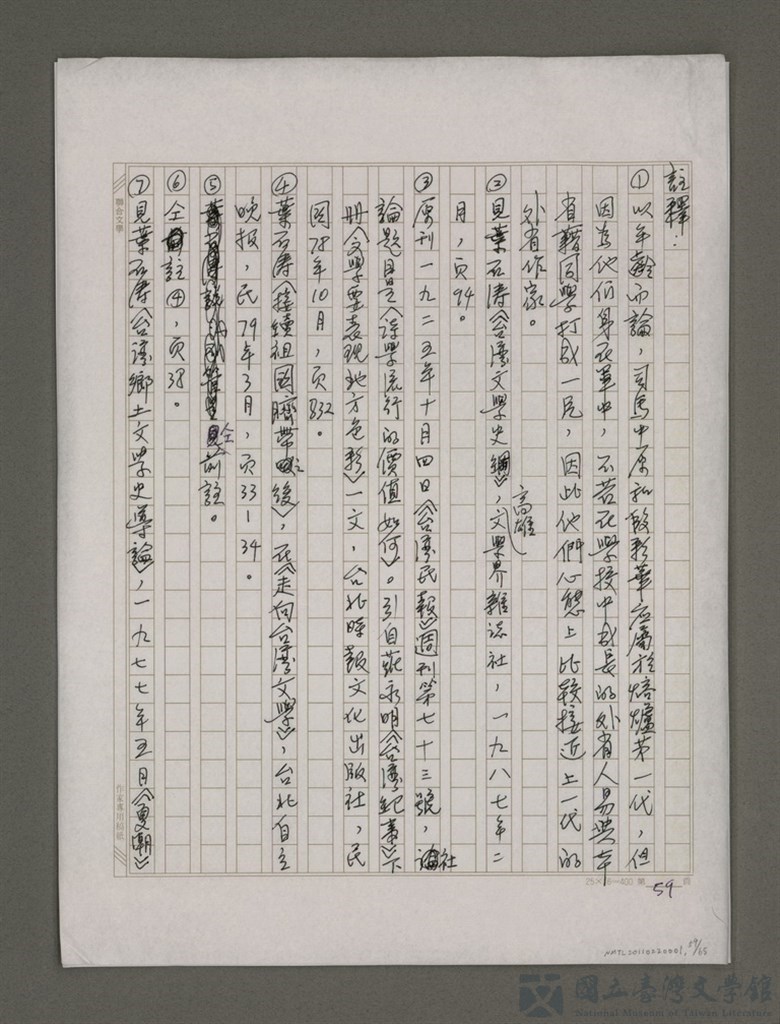 註釋：
①以年齡而論，司馬中原和段彩華应屬於熔爐第一代，但
因為他们身在軍中，不若在學校中成長的外省人易與本
省籍同學打成一片，因此他們心態上比較接近上一代的
外省作家。
②見葉石濤《台湾文學史綱》，高雄文學界雜誌社，一九八七年二
月，页94。
③原刊一九二五年十月四日《台湾民報》週刊第七十三號，社
論題目是〈詩學流行的價值如何〉。引自莊永明《台湾紀事》下
冊〈文學要表現地方色彩〉一文，台北時報文化出版社，民
国78年10月，页832。
④葉石濤〈接續祖国臍帶之後〉，在《走向台湾文學》，台北自立
晚报，民79年3月，页33-34。
⑤仝前註。
⑥仝註④，页38。
⑦見葉石濤〈台湾鄉土文學史導論〉，一九七七年五月《夏潮》
聯合文學
作家專用稿紙
25×16=400 第 59 頁
NMTL20110220001, 59/65
國立臺灣文學館
National Museum of Taiwan Literature